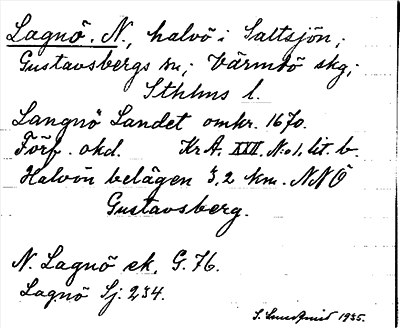 Lagnö. N., halvö i Saltsjön,;
Gustavsbergs sn; Värmdö skg;
Sthlms l.
Langnö Landet omkr. 1670.
Förf. okd. Kr. A. XXII. No 1. lit. b.
Halvön belägen 3,2 km. NNÖ
Gustavsberg.
N. Lagnö ek. G. 76.
Lagnö Sj. 234.
1935.